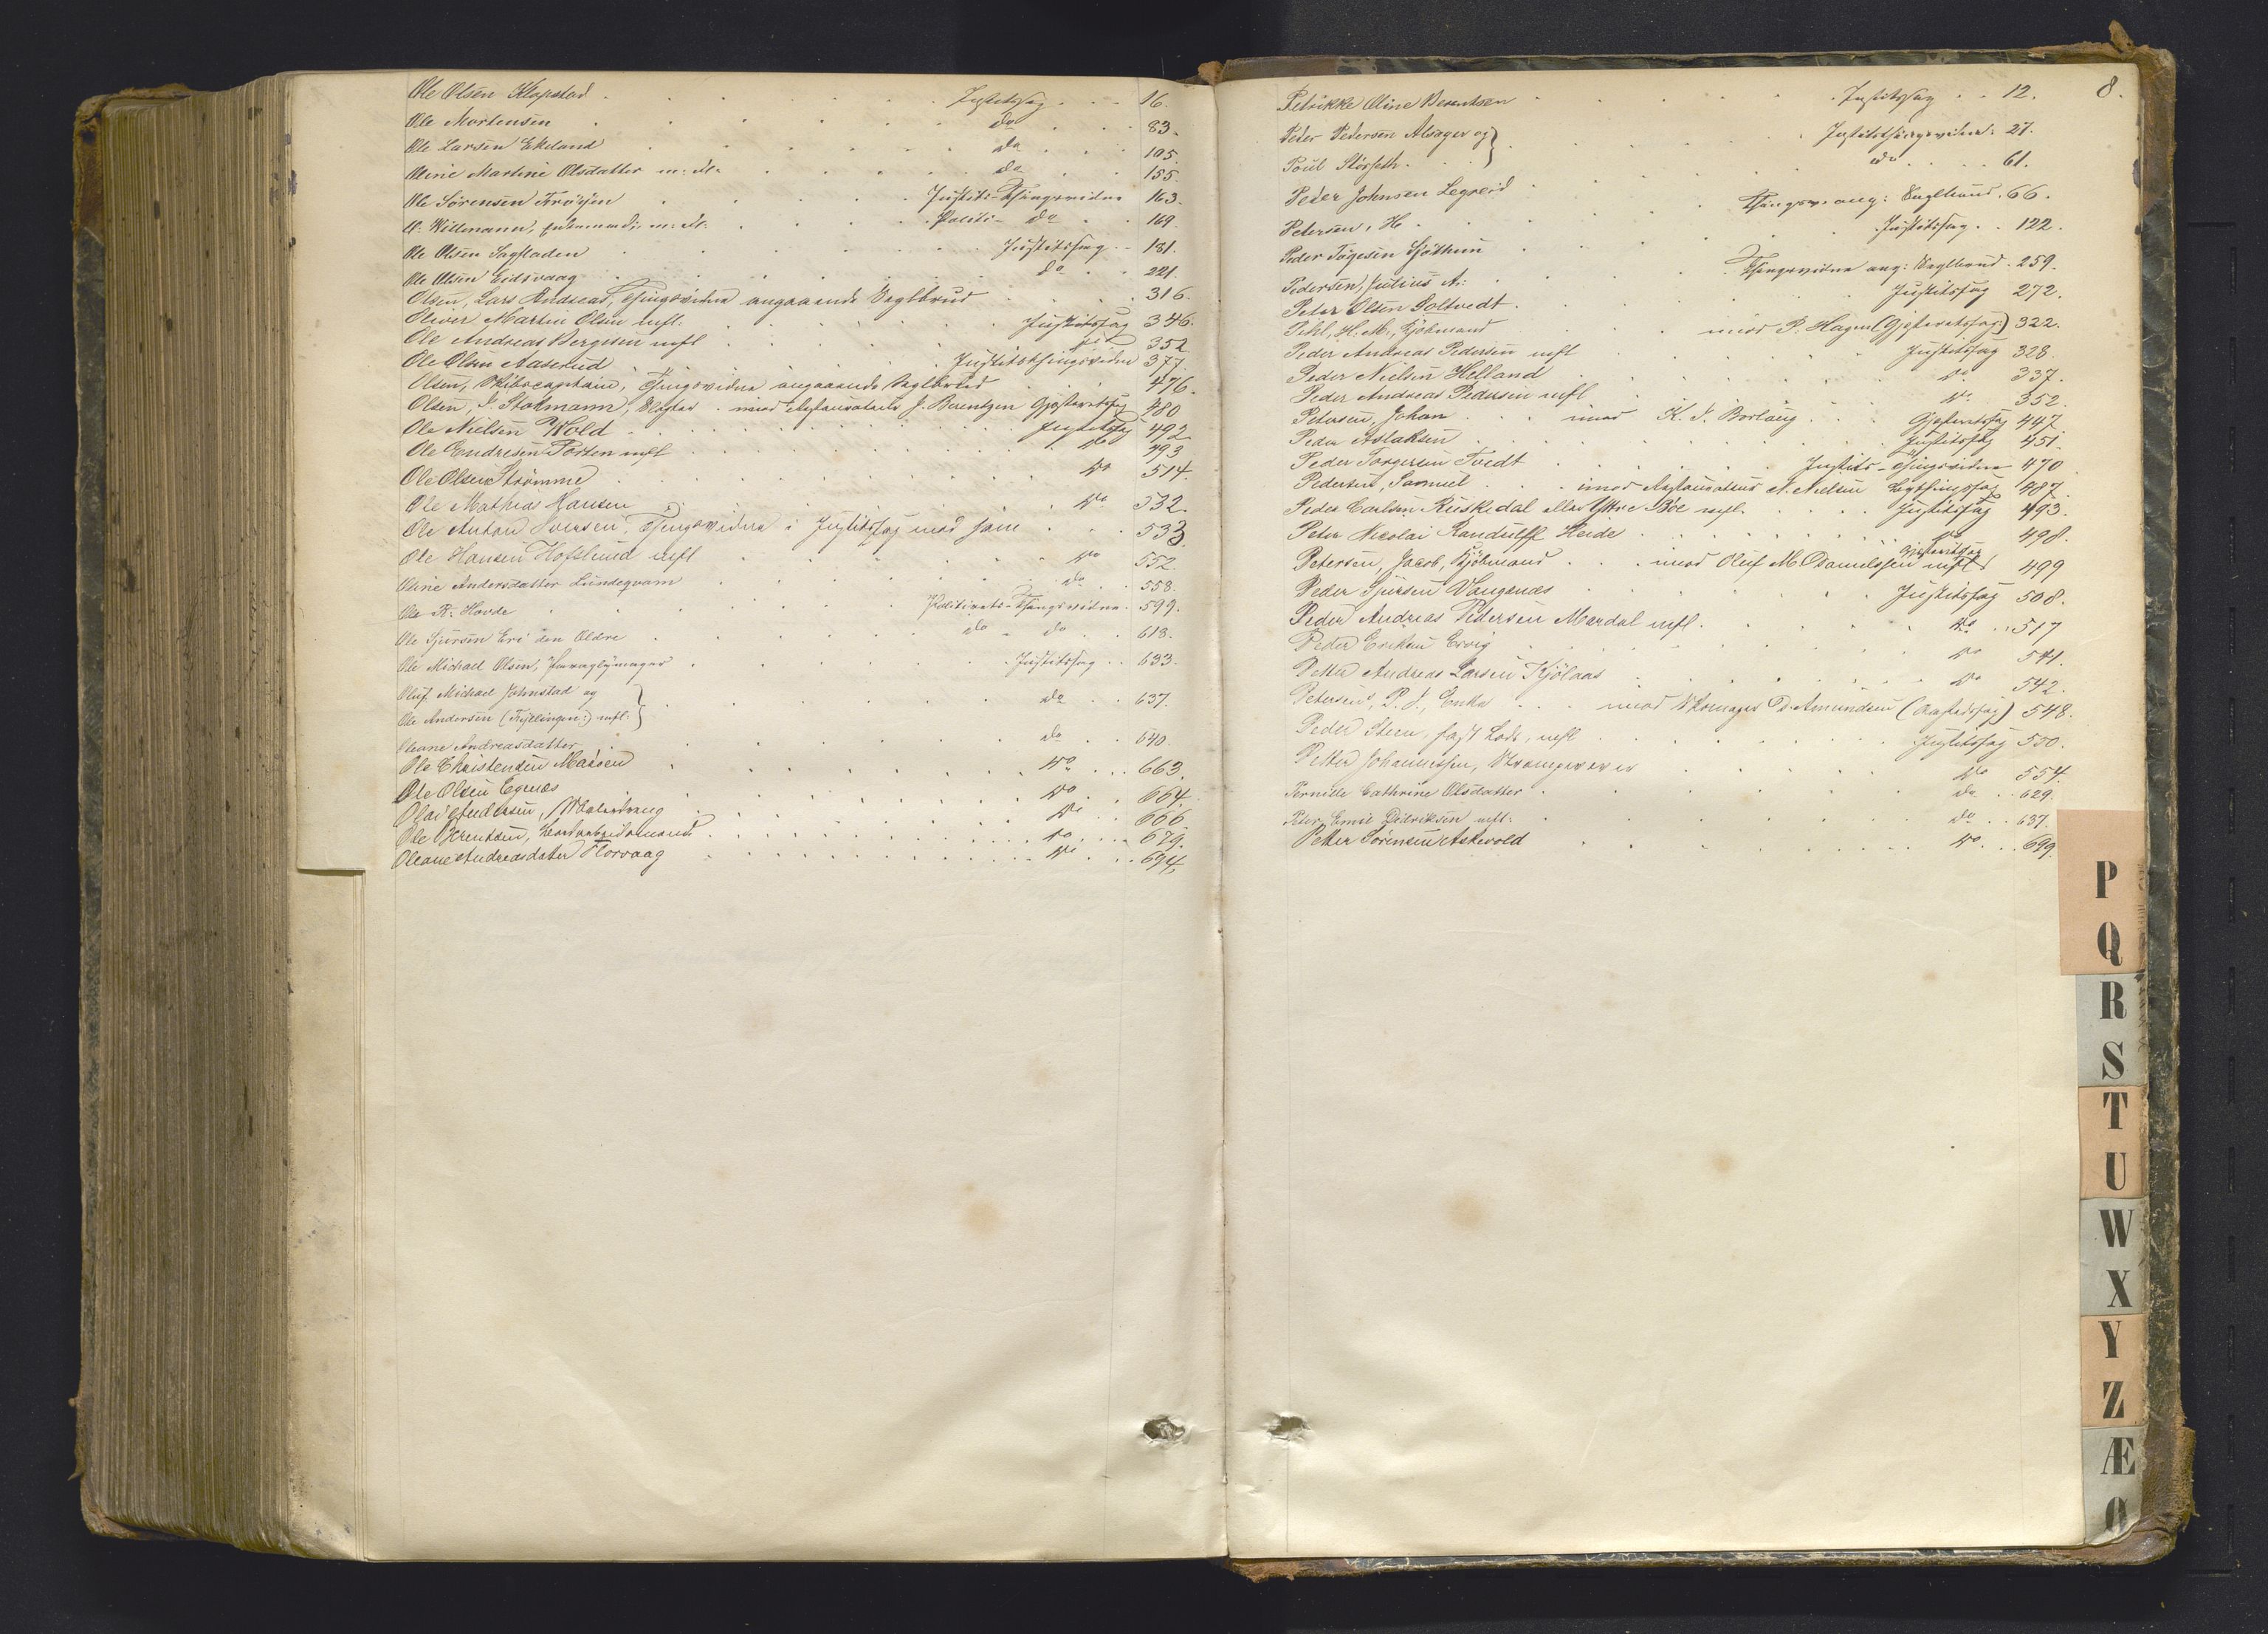 Ole Olsen Klopstad . . . Justitssag . . 16.
Ole Mortensen . . . do . . 83.
Ole Larsen Ekeland . . . do . . 105.
Oline Martine Olsdatter m: fl: . . . do . . 155.
Ole Sörensen Tröyen . . . Justits-Thingsvidne 163.
Willmann, m: fl: . . . Politi- do . . 169.
Ole Olsen Sagstaden . . . Justitssag . . 181.
Ole Olsen Eidsvaag . . . do . . 221.
Olsen, Lars Andreas, Thingsvidne angaaende Vaglbrud . . . 316.
Oliver Martin Olsen mfl. . . . Justitssag 346.
Ole Andreas Bergesen mfl . . . 352
Ole Olsen Aaserud . . . Justitsthingsvidne 377.
Olsen, Skibscaptain, Thingsvidne angaaende Vaglbrud . . . 476.
Olsen, Stohmann, . imod Restauratør J. Berentzen Gjæsteretssag 480
Ole Nielsen Wold . . . Justitssag 492
Ole Endresen Porten mfl . . . do 493
Ole Olsen Strömme . . . do 514.
Ole Mathias Hansen . . . do 532.
Ole Anton Iversen, Thingsvidne i Justitssag mod ham . . . 533.
Ole Hansen Hofslund mfl . . . do 552.
Oline Andersdatter Lundeqvam . . . do . . 558.
Ole K. Hovde . . . Politirets-Thingsvidne . 599.
Ole Sjursen Eri den Ældre . . . do - do . . 618.
Ole Michael Olsen, . . . Justitssag . . 633.
Oluf Michael Johnstad og }
Ole Andersen (Kyllingen:) mfl: } . . . do . . 637.
Oleane Andreasdatter . . . do . . 640.
Ole Christensen Madsen . . . do . . . 663.
Ole Olsen Egenæs . . . do . . . 664.
Olai Andersen, . . . do . . 666
Ole Berentsen, . . . do . . . 679.
Oleane Andreasdatter Florvaag . . . do . . . 694.
8.
Petrikke Oline Berentsen . . . Justitssag . . 12.
Peder Pedersen Alsager og } . . . Justitsthingsvidne: 27.
Poul Störseth . . } do . . . 61.
Peder Johnsen Legreid . . . Thingsv: ang: Vaglbrud . 66.
Petersen, H. . . . Justitssag . . 122.
Peder Tögesen Sjöthun . . .
Pedersen, Julius A: . . . Thingsvidne ang: Vaglbrud . 259.
Peter Olsen Soltvedt . . . Justitssag 272.
Pihl, H. M., Kjöbmand . . . imod P. Hagen (Gjæsteretssag:) 322.
Peder Andreas Pedersen mfl . . . Justitssag 328
Peder Nielsen Helland . . . do 337.
Peder Andreas Pedersen mfl . . . do 352.
Petersen, Johan . . . imod K. N. Borlaug . . . Gjæsteretssag 447
Peder Aslaksen . . . Justitssag 451.
Peder Torgersen Tvedt . . . Justits-Thingsvidne 470
Pedersen, Samuel . . . imod Restauratør N. Nielsen 487.
Peder Carlsen Ruskedal eller Ytre Böe mfl. . . . Justitssag 493.
Peter Nicolai Randulff Heide . . . do 498.
Petersen, Jacob, Kjöbmand . . . imod Oluf M. Danielssen mfl Gjæsteretssag 499
Peder Sjursen Vangsnæs . . . Justitssag 508.
Peder Andreas Pedersen Mardal mfl. . . . do . . 517
Peder Eriksen Ervig . . . do 541.
Petter Andreas Larsen Kjölaas . . . do 542.
Petersens, P. J., Enke . . . imod Skomager D. Amundsen (Aastedssag) 548.
Peder Steen, mfl . . . Justitssag 550.
Petter Johannessen, . . . do 554.
Pernille Cathrine Olsdatter . . . do . . 629.
Peter Emil Didriksen mfl: . . . do . . 637.
Petter Sörensen Askevold . . . do . . . 699.
P
Q
R
S
T
U
W
X
Y
Z
Æ